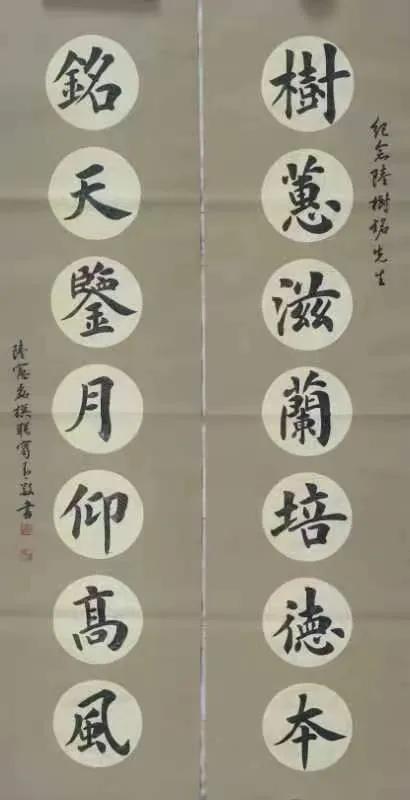 紀念陸樹銘先生
樹蕙滋蘭培德本
銘天鑒月仰高風
撰聯
書